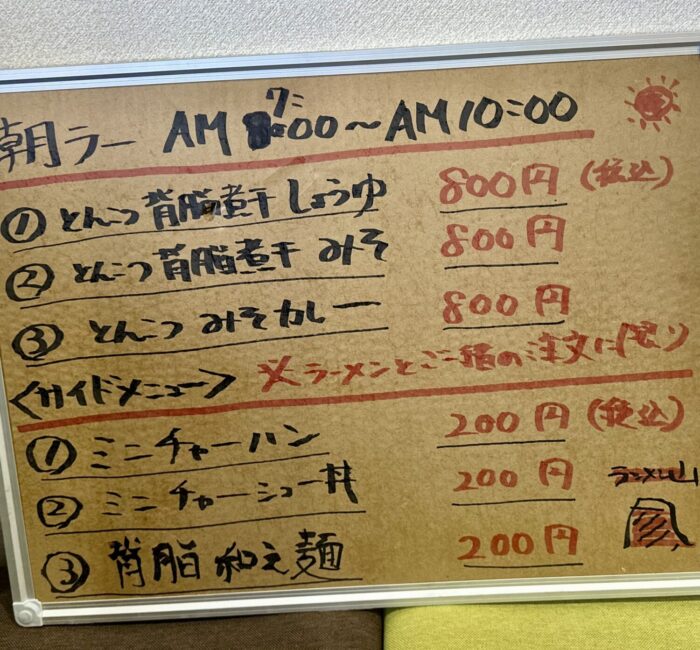 朝ラー AM 7:00～AM10:00
① とんこつ背脂煮干しょうゆ 800円(税込)
② とんこつ背脂煮干みそ 800円
③ とんこつみそカレー 800円
<サイドメニュー> ※ラーメンとご一緒の注文に限り
① ミニチャーハン 200円(税込)
② ミニチャーシュー丼 200円
③ 背脂和え麺 200円